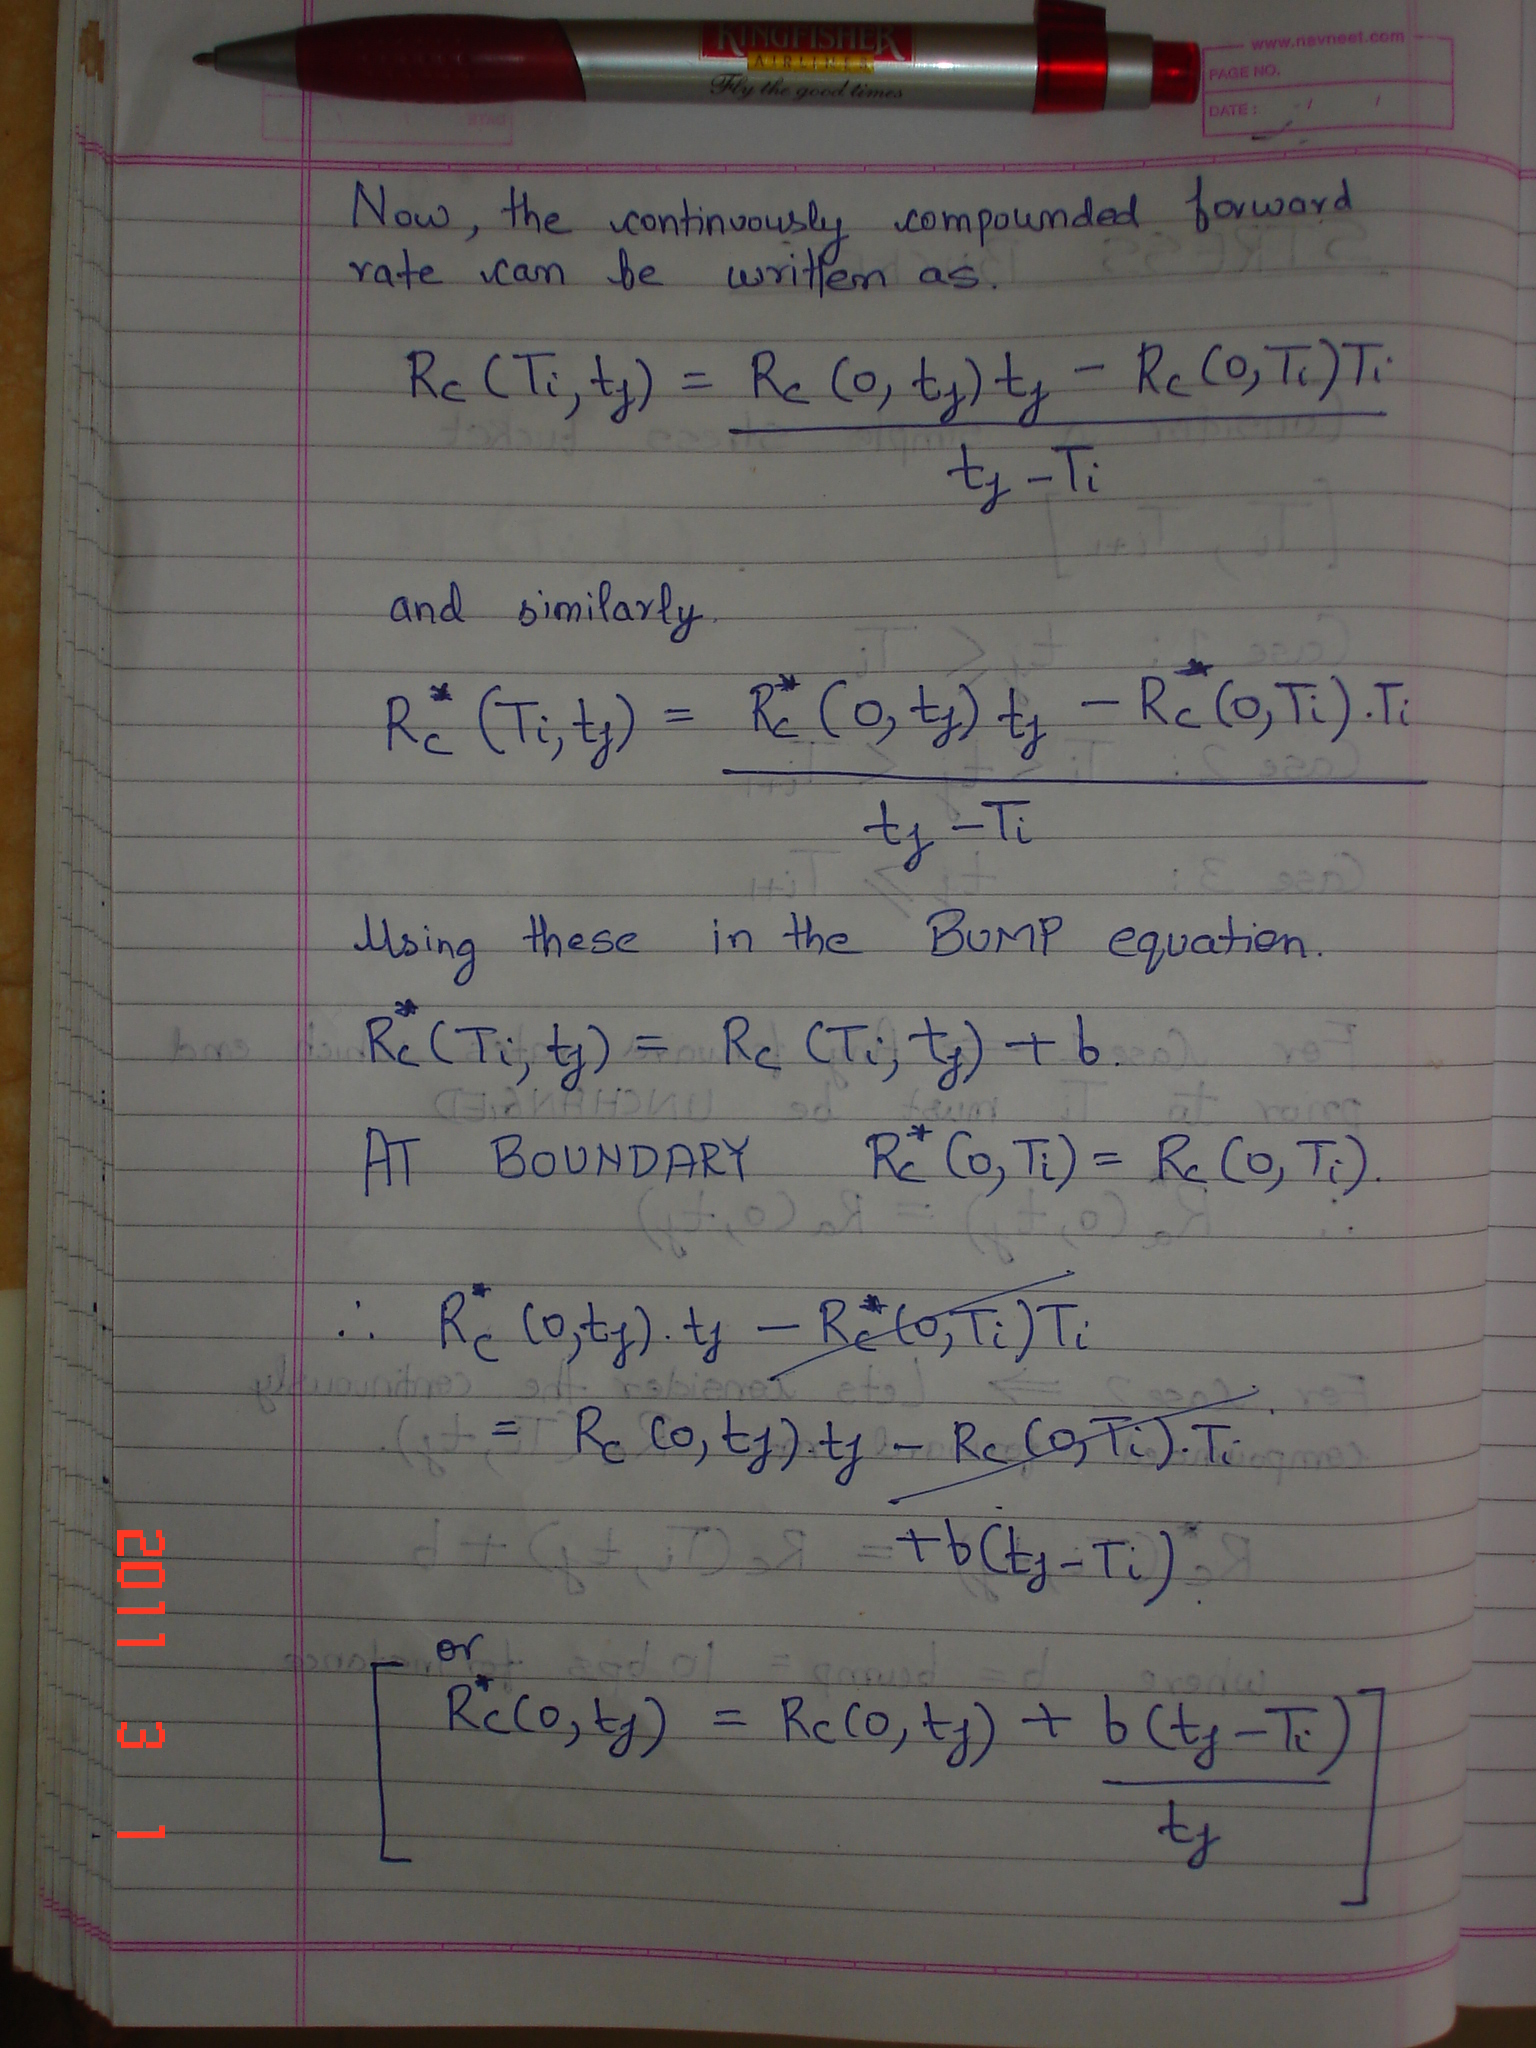 KINGFISHER
AIRLINES
Fly the good times
www.navneet.com
PAGE NO.
DATE : / /
Now, the continuously compounded forward
rate can be written as.
Rc (Ti, tj) = Rc (0, tj) tj - Rc (0, Ti) Ti
tj - Ti
and similarly.
Rc* (Ti, tj) = Rc* (0, tj) tj - Rc* (0, Ti) . Ti
tj - Ti
Using these in the BUMP equation.
Rc* (Ti, tj) = Rc (Ti, tj) + b.
AT BOUNDARY Rc* (0, Ti) = Rc (0, Ti).
∴ Rc* (0, tj). tj - Rc* (0, Ti) Ti
= Rc (0, tj). tj - Rc (0, Ti). Ti
+ b (tj - Ti)
or
Rc* (0, tj) = Rc (0, tj) + b (tj - Ti)
tj
2011 3 1